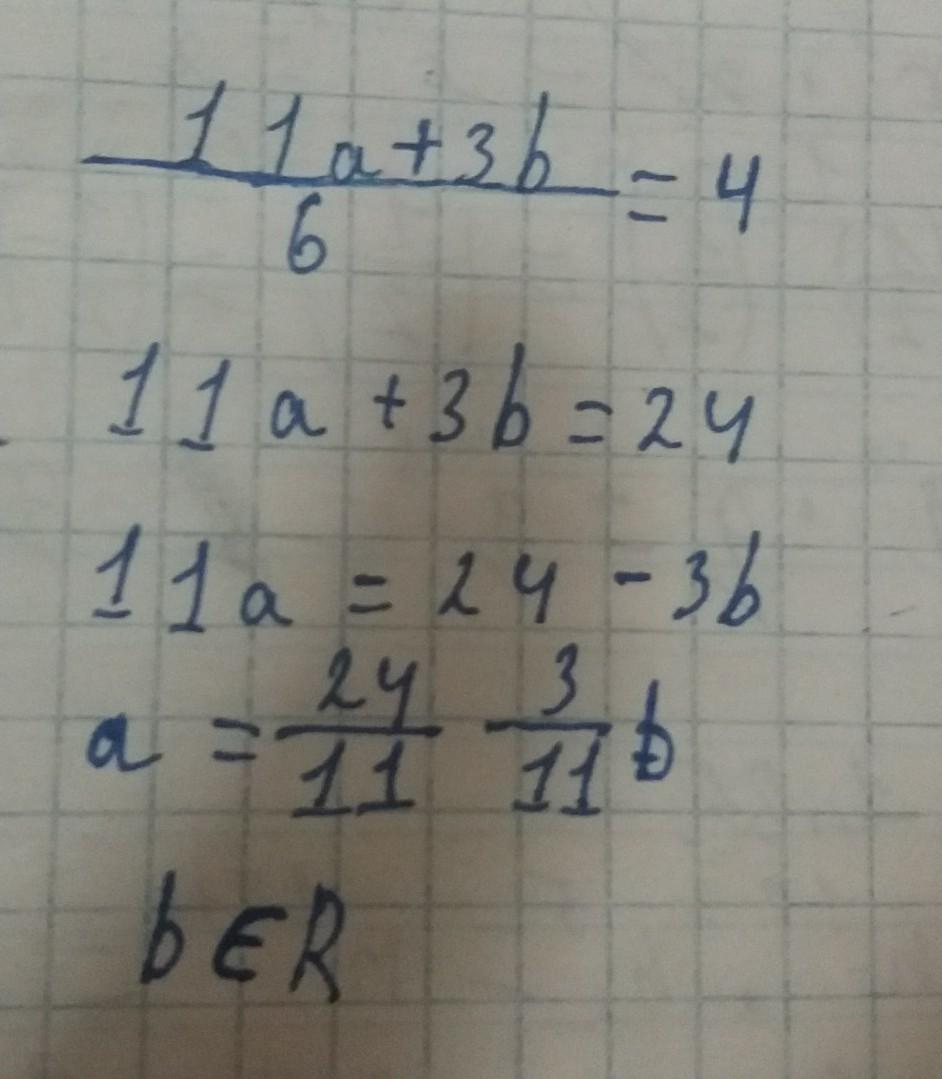 11a+3b/6 = 4
11a + 3b = 24
11a = 24 - 3b
a = 24/11 3/11 b
b ∈ R